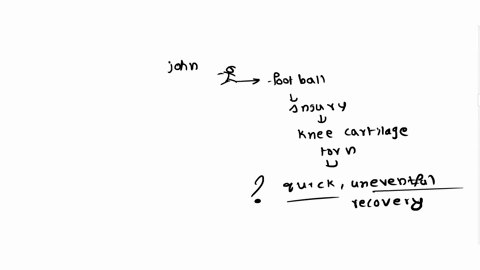 john
football
Insury
knee cartilage
torn
? quick, uneventful
recovery